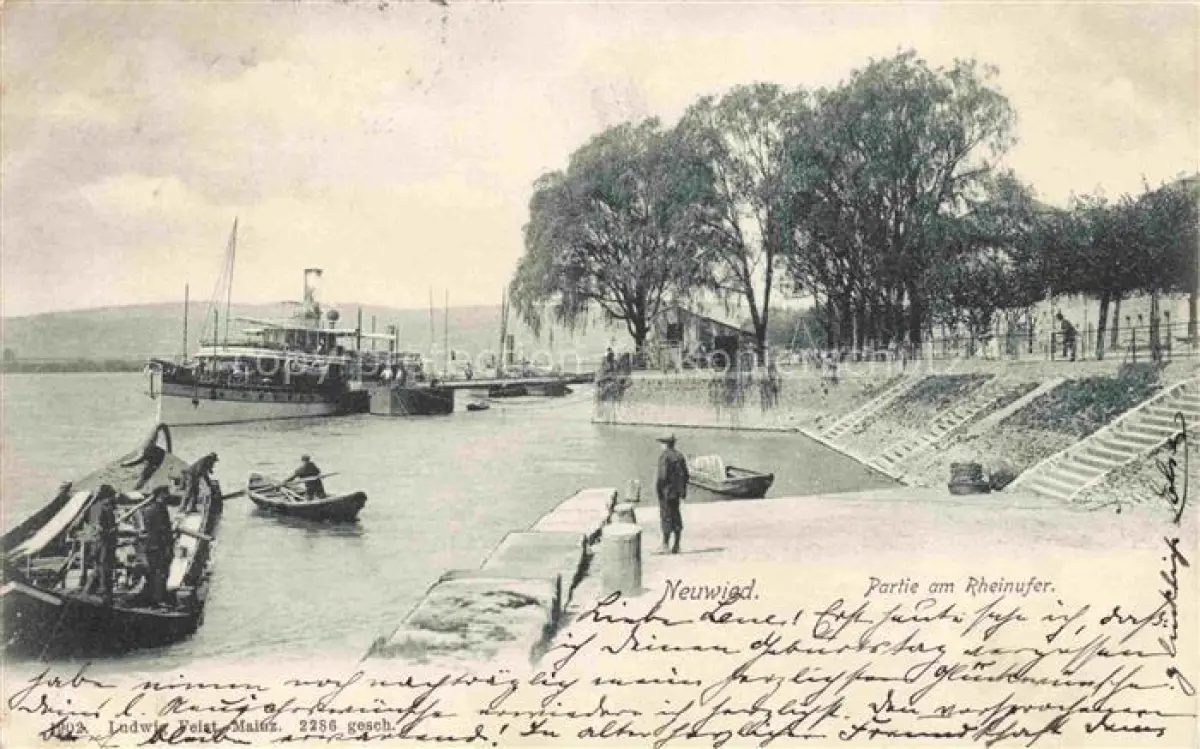 Neuwied. Partie am Rheinufer.
Liebe Lene! Erst heute sehe ich, daß
ich Deinen Geburtstag vergessen
habe nimm noch nachträglich meine herzlichsten Glückwünsche.
Deine l. erwiedere ich herzlichst. Den versprochenen
bleibe In alter herzlicher Freundschaft Deine
1902. Ludwig Feist, Mainz. 2286 gesch.